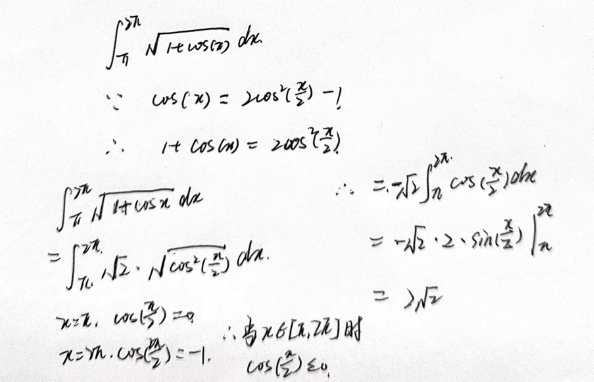 ∫_π^{2π} √(1+cos(x)) dx.
∵ cos(x) = 2cos²(x/2) -1
∴ 1+cos(x) = 2cos²(x/2)
∫_π^{2π} √(1+cosx) dx
= ∫_π^{2π} √2 · √(cos²(x/2)) dx.
x=π, cos(π/2)=0
x=2π. cos(2π/2)=-1.
∴ 当x∈[π,2π]时
cos(x/2)≤0
∴ = -√2 ∫_π^{2π} cos(x/2) dx
= -√2 · 2 · sin(x/2) |_π^{2π}
= 2√2